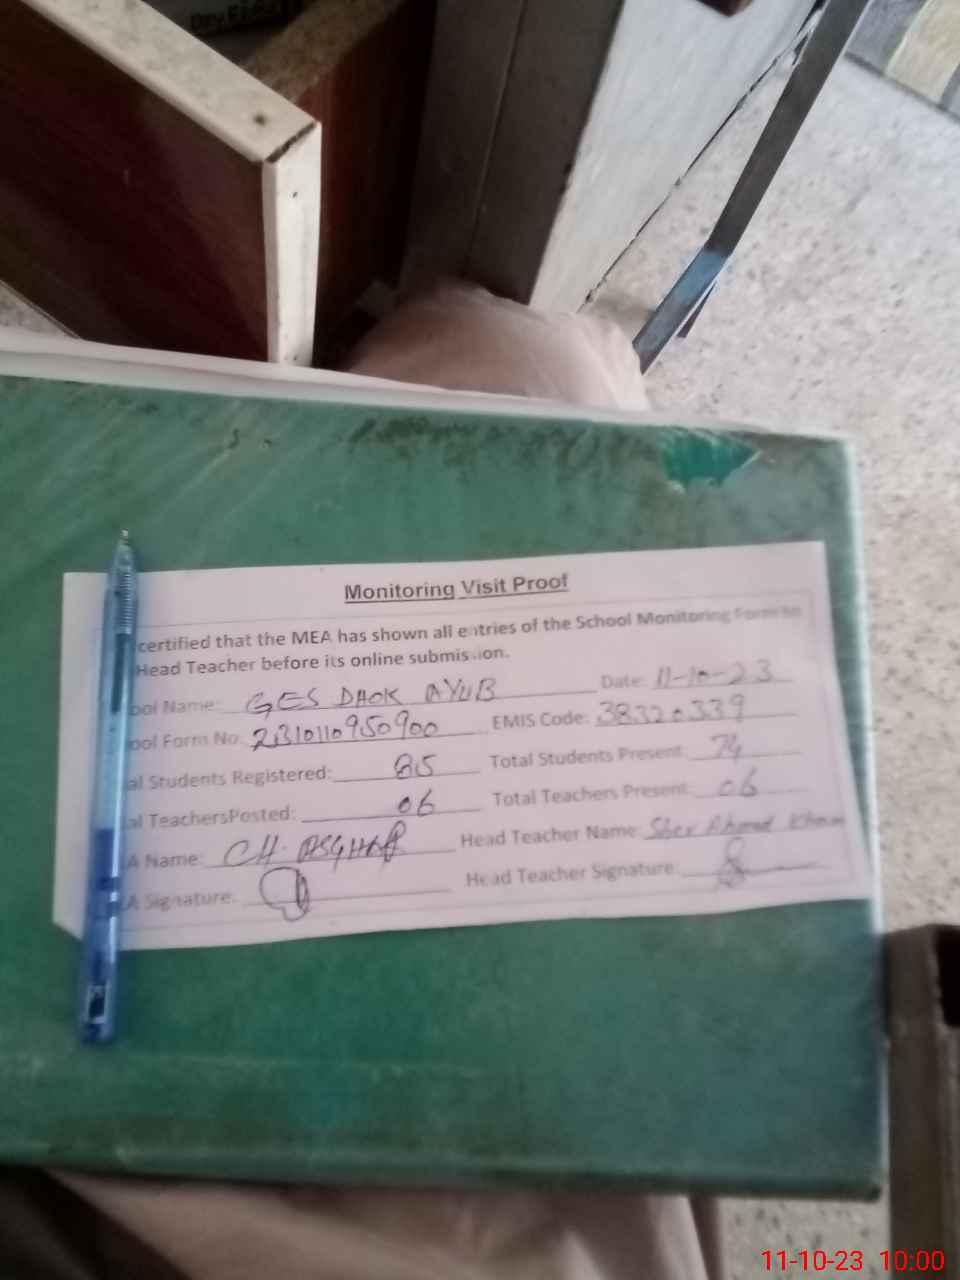 Monitoring Visit Proof
certified that the MEA has shown all entries of the School Monitoring Form to
Head Teacher before its online submission.
ool Name: GES DHOK AYUB Date: 11-10-23
ool Form No: 2310110950900 EMIS Code: 38320339
al Students Registered: 85 Total Students Present: 74
al TeachersPosted: 06 Total Teachers Present: 06
A Name: CH. ASGHAR Head Teacher Name: Sher Ahmad Khan
A Signature: Head Teacher Signature:
11-10-23 10:00